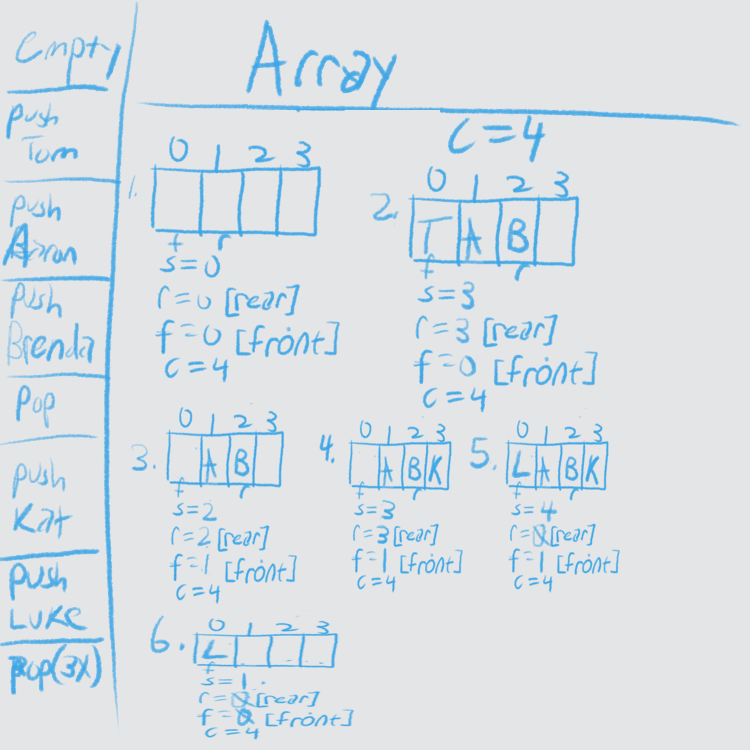 Empty
push
Tom
push
Aaron
push
Brenda
Pop
push
Kat
push
Luke
pop(3x)
Array
c=4
0 1 2 3
1.
f r
s=0
r=0 [rear]
f=0 [front]
c=4
0 1 2 3
2. T A B
f r
s=3
r=3 [rear]
f=0 [front]
c=4
0 1 2 3
3. A B
f r
s=2
r=2 [rear]
f=1 [front]
c=4
0 1 2 3
4. A B K
f r
s=3
r=3 [rear]
f=1 [front]
c=4
0 1 2 3
5. L A B K
f r
s=4
r=0 [rear]
f=1 [front]
c=4
0 1 2 3
6. L
f
s=1
r= [rear]
f=0 [front]
c=4